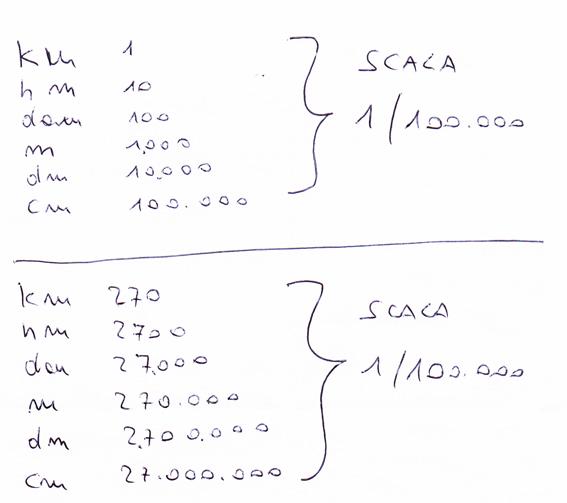 km 1
hm 10
dam 100
m 1.000
dm 10.000
cm 100.000
SCALA
1/100.000
km 270
hm 2700
dam 27.000
m 270.000
dm 2.700.000
cm 27.000.000
SCALA
1/100.000